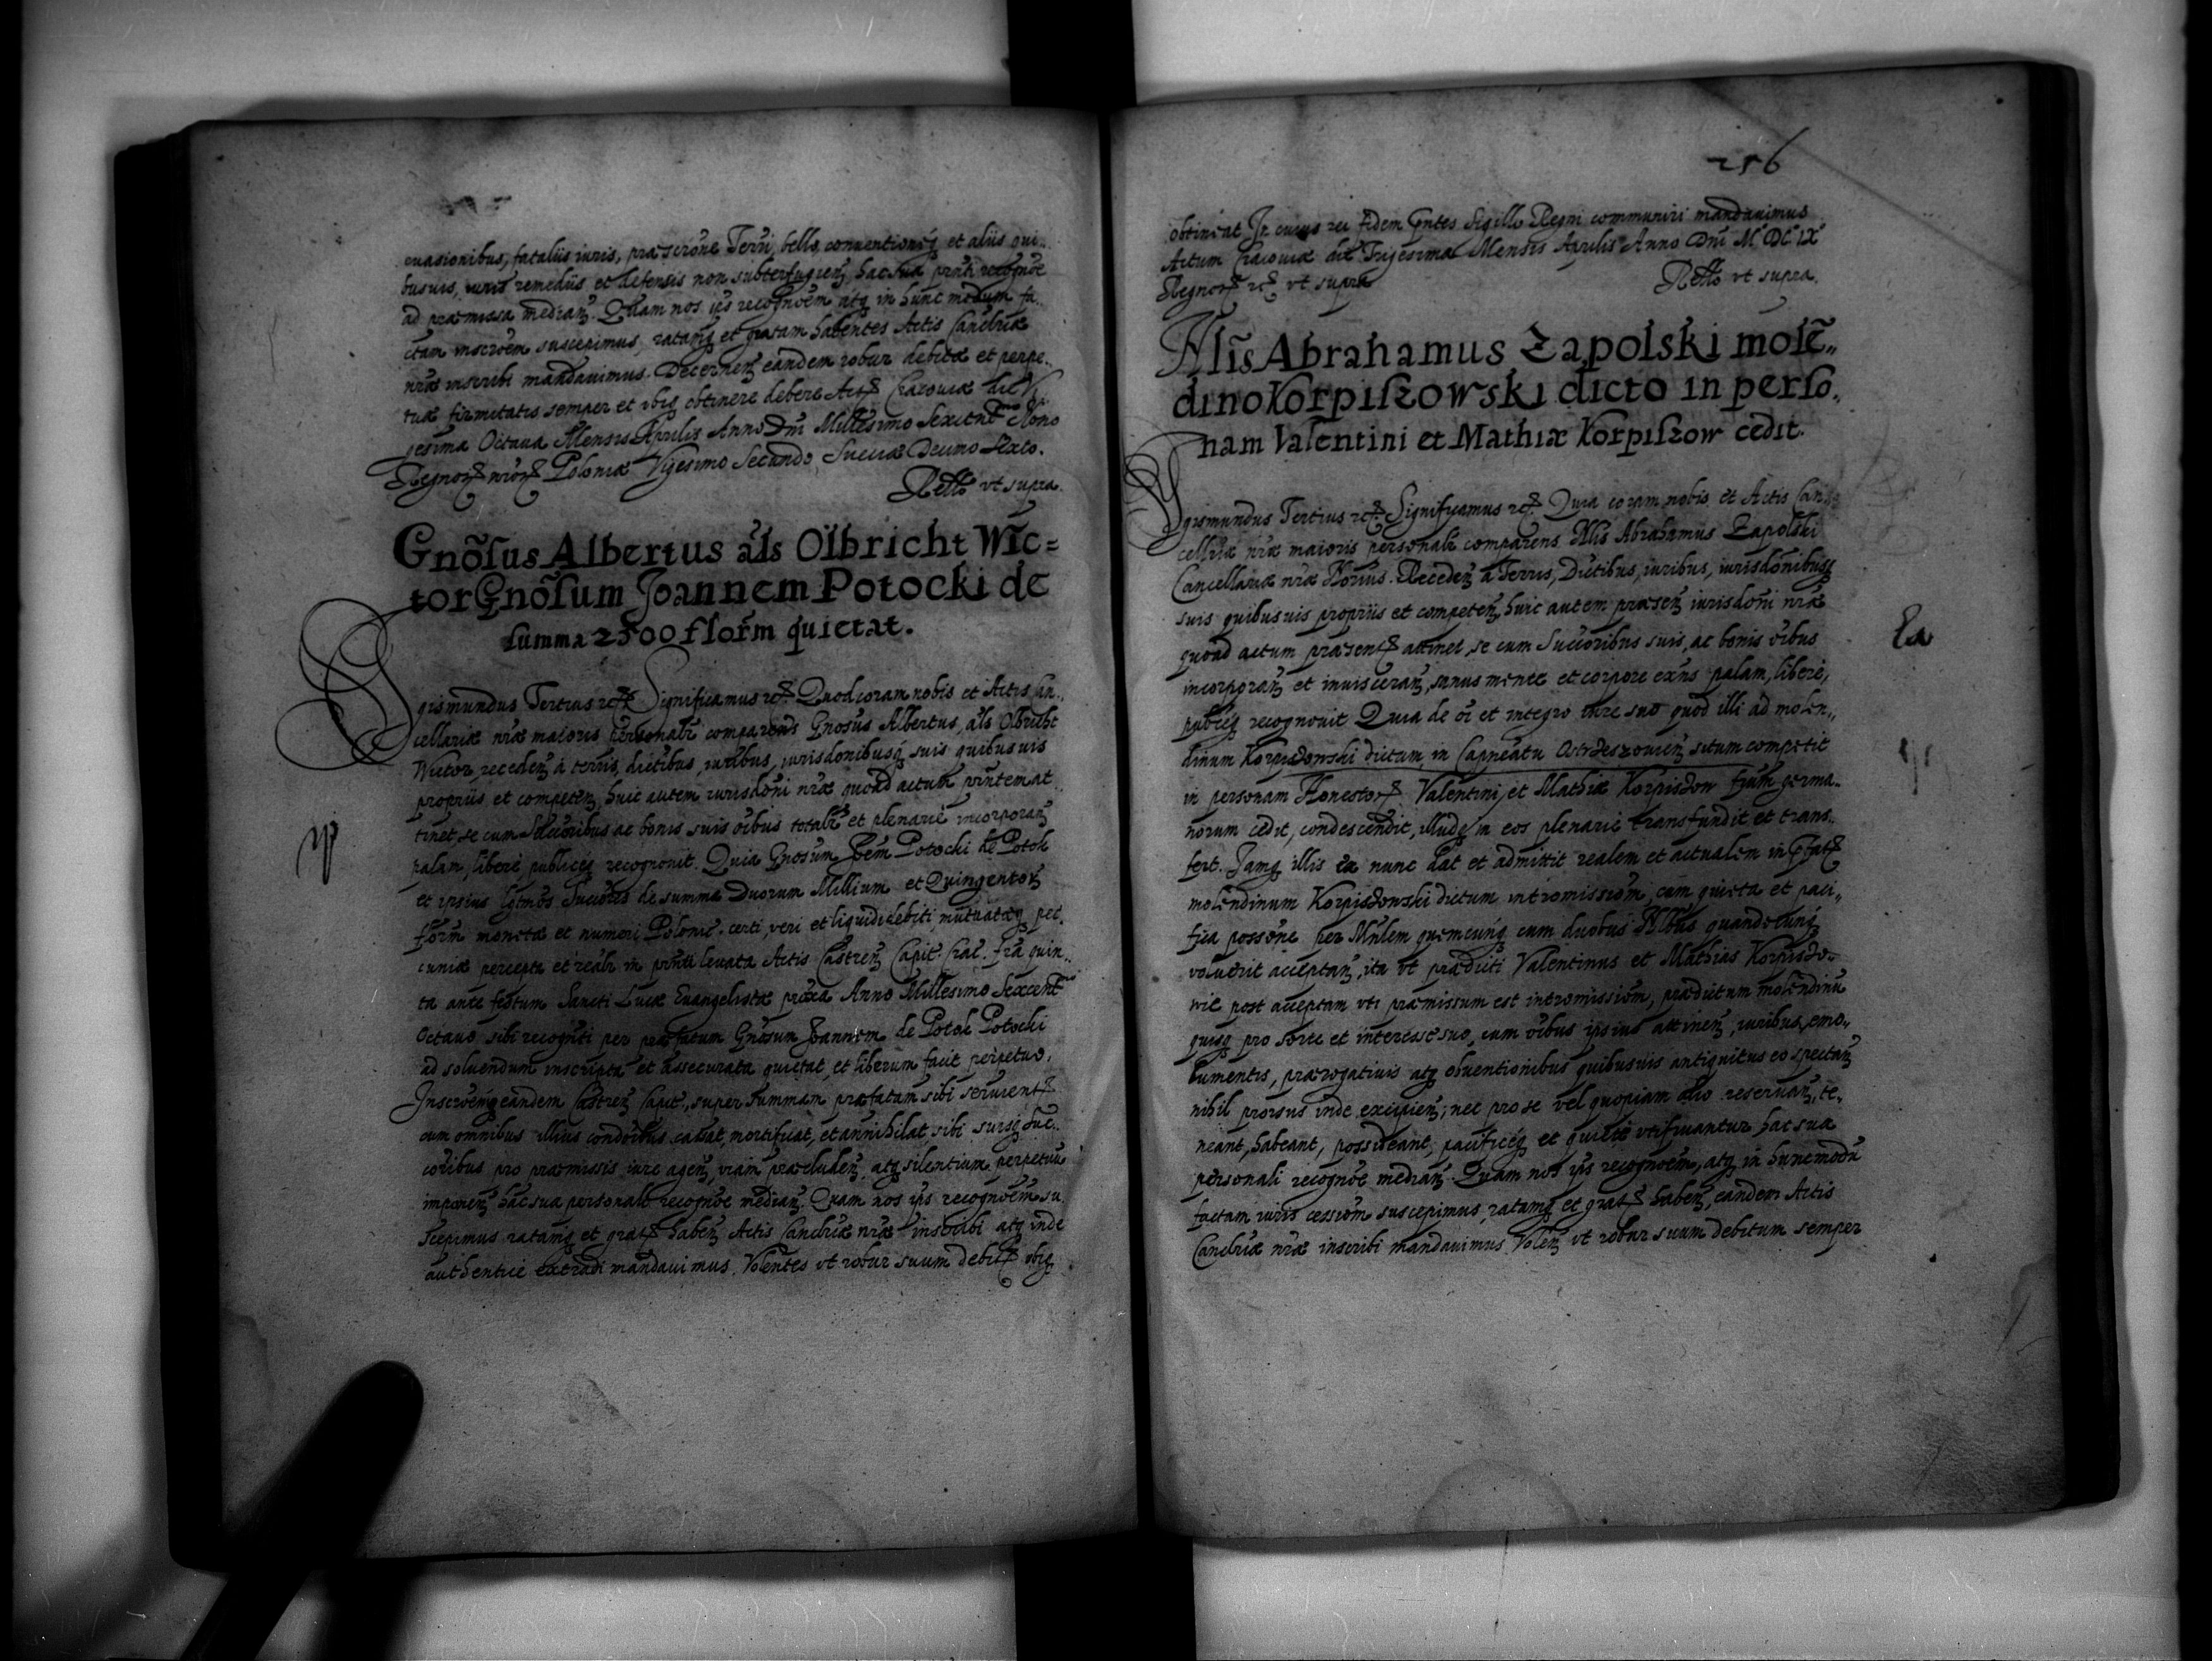 euasionibus, fataliis iuris, præscrõne Terrŕ, bello, conuentioniq₃ et aliis qui„
busuis, iuris remediis et defensis non subterfugieñ, hac sua prñti recognõe
ad præmissa mediañ. Quam nos ip̃s recognõem atq₃ in hunc modum fa„
ctam inscrõem suscepimus, ratamq₃ et gratam habentes Actis Cancellriæ
nr̃æ inscribi mandauimus. Decerneñ eandem robur debitæ et perpe„
tuæ firmitatis semper et vbiq₃ obtinere debere Act Cracouiæ die Vi„
gesima Octaua Mensis Aprilis Anno Dñi Millesimo Sexcent͠mo Nono
Regnor nr̃or Poloniæ Vigesimo Secundo, Sueciæ Decimo Sexto.
Rel͠lo vt supra.
Gnõsus Albertus al̃s Olbricht Wic=
tor Gnõsum Joannem Potocki de
summa 2500 flor̃m quietat.
Sigismundus Tertius rc̃. Significamus rc̃. Quod coram nobis et Actis Can„
cellariæ nr̃æ maioris personalr̃ comparens Gnosus Albertus, al̃s Olbricht
Wictor, recedeñ a terris, dictibus, iuribus, iurisdonibusq₃ suis quibusuis
propriis et competeñ, huic autem iurisdõni nr̃æ quoad actum prñtem at„
tinet se cum Succoribus ac bonis suis oĩbus totalr̃ et plenarie incorporañ
palam, libere, publiceq₃ recognouit. Quia Gnosum Joẽm Potocki de Potok
et ipsius lgtmos Succores de summa Duorum Millium et Quingentor
flor̃m monetæ et numeri Polonic. certi, veri et liquidi debiti, mutuatæq₃ pec„
cuniæ percepta et realr̃ in prñti leuata Actis Castreñ Capit. Crac. fr̃a quin„
ta ante festum Sancti Lucæ Euangelistæ prõxa Anno Millesimo Sexcent͠mo
Octauo sibi recogniti per præfatum Gnosum Joannem de Potok Potocki
ad soluendum inscripta et assecurata quietat, et liberum facit perpetuo.
Inscrõemq₃ eandem Castreñ Capit., super summam præfatam sibi seruient
cum omnibus illius condõibus cassat, mortificat, et annihilat, sibi suisq₃ Suc„
coribus pro præmissis iure ageñ, viam præcludeñ, atq₃ silentium perpetuũ
imponeñ hac sua personali recognõe mediañ. Quam nos ip̃s recognõem su„
scepimus ratamq₃ et grat habeñ Actis Cancellriæ nr̃æ inscribi atq₃ inde
authentice extradi mandauimus. Volentes vt robur suum debit vbiq₃
256
obtineat. In cuius rei fidem Prñtes Sigillo Regni communiri mandauimus
Actum Cracouiæ die Trigesima Mensis Aprilis Anno Dñi M DC IX
Regnor rc̃ vt supra
Rel͠lo vt supra.
Nl̃is Abrahamus Zapolski molẽ„
dino Korpiszowski dicto in perso„
nam Valentini et Mathiæ Korpiszow cedit.
Sigismundus Tertius rc̃. Significamus rc̃. Quia coram nobis et Actis Can„
cellriæ nr̃æ maioris personalr̃ comparens Nlis Abrahamus Zapolski
Cancellariæ nr̃æ Norius. Recedeñ a Terris, Dictibus, iuribus, iurisdõnibusq₃
suis quibusuis propriis et competeñ, huic autem præseñ iurisdõni nr̃æ
quoad actum præsent attinet, se cum Succoribus suis, ac bonis oĩbus
incorporañ et inuiscerañ, sanus mente et corpore exñs palam, libere,
publiceq₃ recognouit Quia de oĩ et integro iure suo quod illi ad molen„
dinum Korpiszowski dictum, in Capneatu Ostrzeszouieñ situm competit
in personam Honestor Valentini, et Mathiæ Korpiszow fr̃um germa„
norum cedit, condescendit, illudq₃ in eos plenarie transfundit et trans„
fert. Jamq₃ illis ex nunc dat et admittit realem et actualem in præfat
molendinum Korpiszowski dictum intromissionem, cum quieta et paci„
fica possõne per Mnl̃em quemcunq₃ cum duobus Nlbus quandocunq₃
voluerit acceptañ, ita vt prædicti Valentinus et Mathias Korpiszo„
wie post acceptam vti præmissum est intromissionem, prædictum molendinũ
quisq₃ pro sorte et interesse suo, cum oĩbus ipsius attineñ, iuribus, emo„
lumentis, prærogatiuis atq₃ obuentionibus quibusuis antiquitus eo spectañ
nihil prorsus inde excipieñ, nec pro se vel quopiam alio reseruañ, te„
neant, habeant, possideant, pacificeq₃ et quiete vtifruantur hac sua
personali recognõe mediañ. Quam nos ip̃s recognõem, atq₃ in hunc modũ
factam iuris cessiõem suscepimus, ratamq₃ et grat habeñ, eandem Actis
Cancellriæ nr̃æ inscribi mandauimus. Voleñ vt robur suum debitum semper